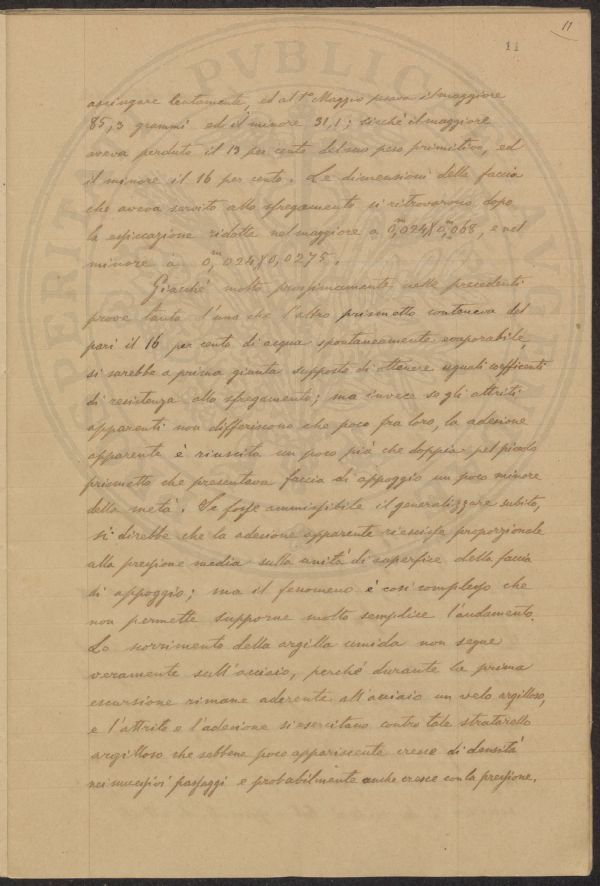 11
11
asciugare lentamente, ed al 1° Maggio pesava il maggiore
85,3 grammi ed il minore 31,1; sicchè il maggiore
aveva perduto il 13 per cento del suo peso primitivo, ed
il minore il 16 per cento. Le dimensioni della faccia
che aveva servito allo sfregamento si ritrovarono, dopo
la essiccazione ridotte nel maggiore a 0,m024X0,m068, e nel
minore a 0,m024X0,0275.
Giacchè molto prossimamente nelle precedenti
prove tanto l'uno che l'altro prismetto conteneva del
pari il 16 per cento di acqua spontaneamente evaporabile,
si sarebbe a prima giunta supposto di ottenere uguali coefficenti
di resistenza allo sfregamento; ma invece se gli attriti
apparenti non differiscono che poco fra loro, la adesione
apparente è riuscita un poco più che doppia pel piccolo
prismetto che presentava faccia di appoggio un poco minore
della metà. Se fosse ammissibile il generalizzare subito,
si direbbe che la adesione apparente riescisse proporzionale
alla pressione media sulla unità di superfice della faccia
di appoggio; ma il fenomeno è così complesso che
non permette supporne molto semplice l'andamento.
Lo scorrimento della argilla umida non segue
veramente sull'acciaio, perchè durante la prima
escursione rimane aderente all'acciaio un velo argilloso,
e l'attrito e l'adesione si esercitano contro tale straterello
argilloso che sebbene poco appariscente cresce di densità
nei successivi passaggi e probabilmente anche cresce con la pressione.